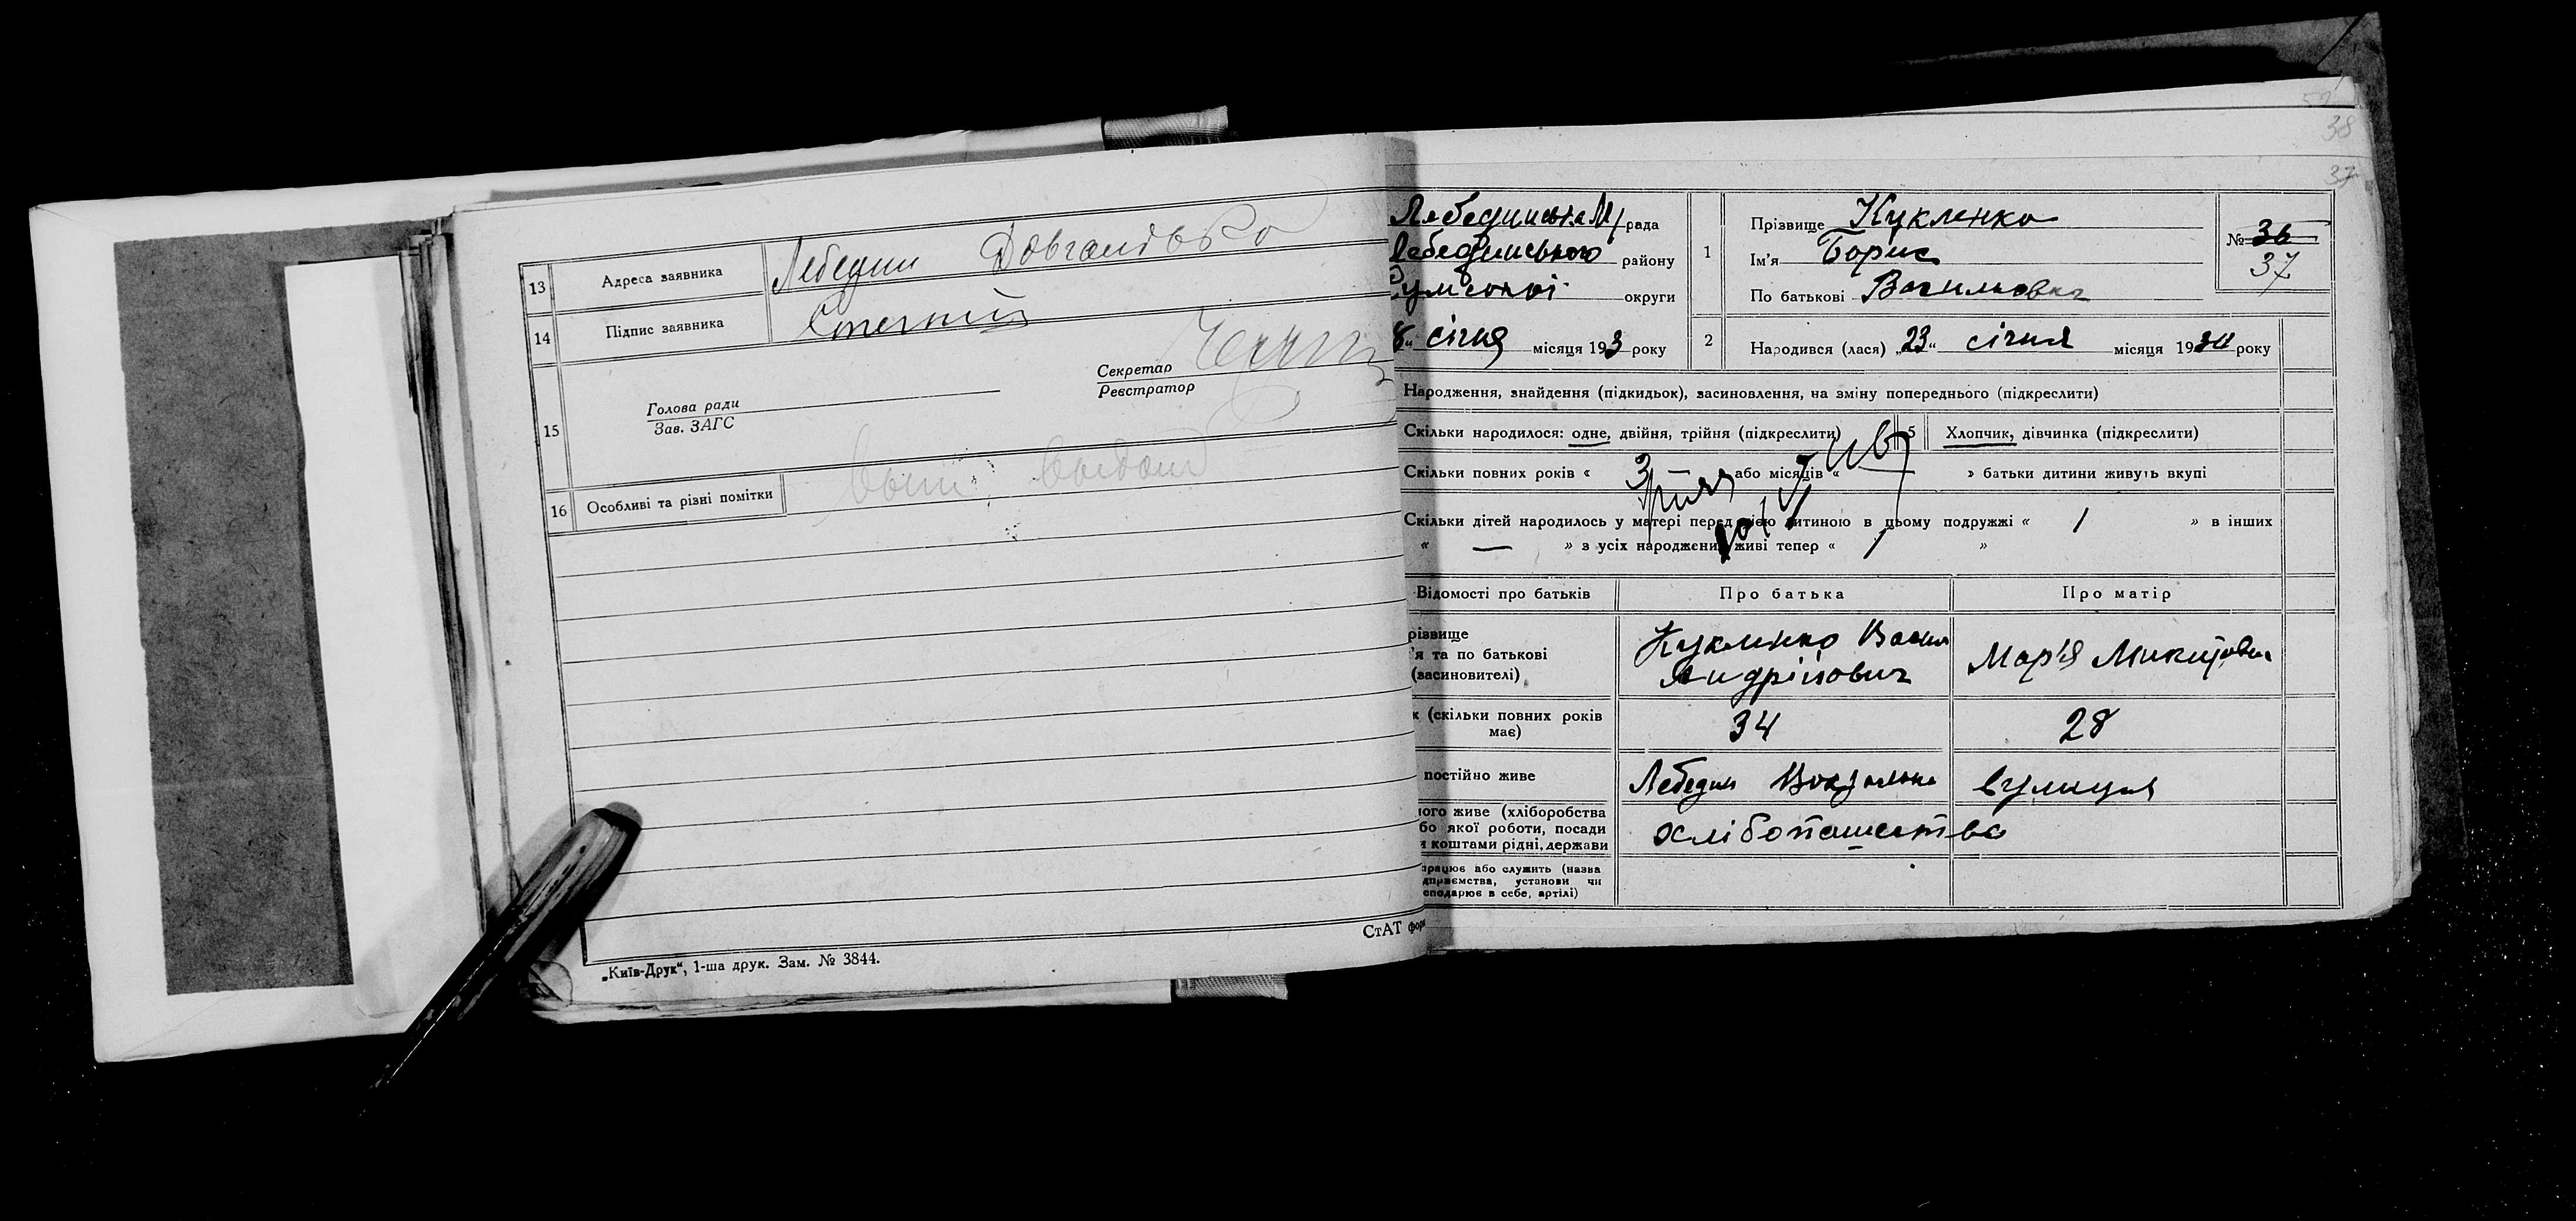 13 Адреса заявника Лебедин
14 Підпис заявника
15
Голова ради
Зав. ЗАГС
Секретар
Реєстратор
16 Особливі та різні помітки
„Київ-Друк“, 1-ша друк. Зам. № 3844.
СтАТ фор
38
37
Лебединська М/рада
Лебединського району
округи
8“ січня місяця 193 року
1 Прізвище Кукленко
Ім'я Борис
По батькові Васильович
№ 36
37
2 Народився (лася) „23“ січня місяця 1930 року
Народження, знайдення (підкидьок), засиновлення, на зміну попереднього (підкреслити)
Скільки народилося: одне, двійня, трійня (підкреслити) 5 Хлопчик, дівчинка (підкреслити)
Скільки повних років « 3 або місяців « » батьки дитини живуть вкупі
Скільки дітей народилось у матері перед цією дитиною в цьому подружжі « 1 » в інших
« — » з усіх народжених живі тепер « 1 »
Відомості про батьків Про батька Про матір
різвище
'я та по батькові
(засиновителі)
Кукленко Васил
Андрійович
Мар'я Микитовна
к (скільки повних років
має)
34 28
постійно живе Лебедин вулиця
ного живе (хліборобства
бо якої роботи, посади
и коштами рідні, держави
хлібопашество
працює або служить (назва
дприємства, установи чи
сподарює в себе, артілі)